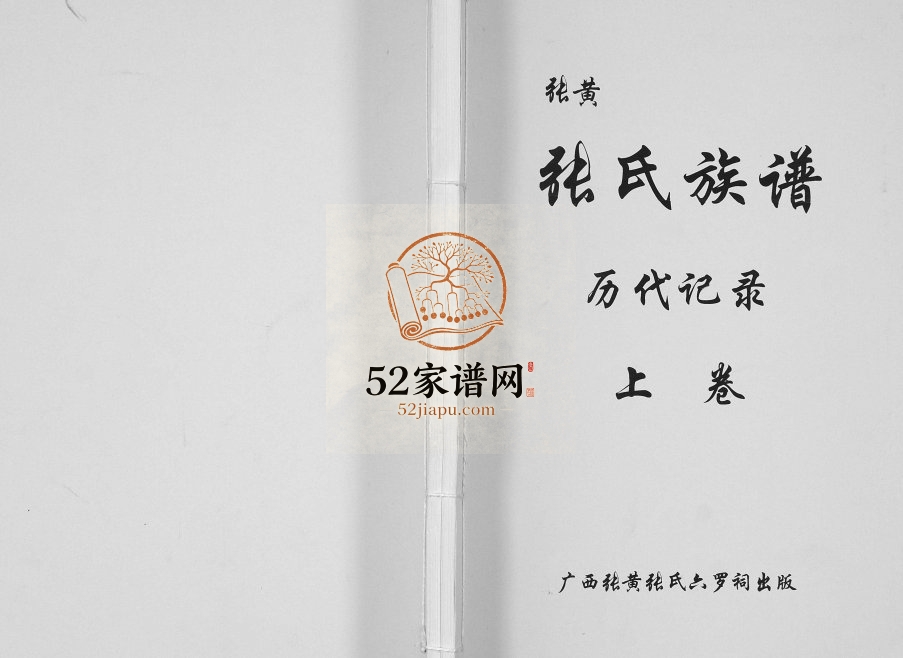 张黄
张氏族谱
历代记录
上卷
广西张黄张氏六罗祠出版
52家谱网
52jiapu.com